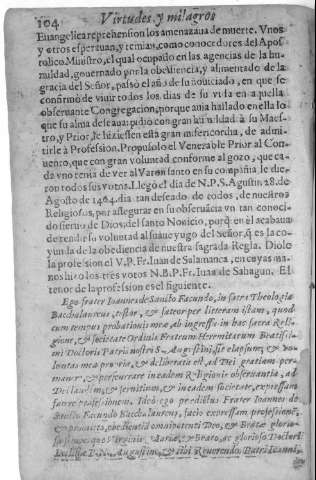 104 Virtudes, y milagros
Euangelica reprehension los amenazaua de muerte. Vnos
y otros esperauan, y temian, como conocedores del Apos-
tolico Ministro, el qual ocupado en las agencias de la hu-
mildad, gouernado por la obediencia, y alimentado de la
gracia del Señor, passò el año de su nouiciado, en que se
confirmò de viuir todos los dias de su vida en aquella
obseruante Congregacion, porque auia hallado en ella lo
que su alma deseaua: pidio con gran humildad à su Maes-
tro, y Prior, le hiziessen esta gran misericordia, de admi-
tirle à Profession. Propusolo el Venerable Prior al Con-
uento, que con gran voluntad conforme al gozo, que ca-
da vno tenia de ver al Varon santo en su compañia le die-
ron todos sus votos. Llegò el dia de N.P.S. Agustin 28. de
Agosto de 1464. dia tan deseado de todos, de nuestros
Religiosos, por assegurar en su obseruācia vn tan conoci-
do sieruo de Dios, del santo Nouicio, porq̃ en èl acabaua
de rendir su voluntad al suaue yugo del Señor, q̃ es la co-
yunda de la obediencia de nuestra sagrada Regla. Diole
la profession el V.P. Fr. Iuan de Salamanca, en cuyas ma-
nos hizo los tres votos N.B.P. Fr. Iuan de Sahagun. El
tenor de la profession es el siguiente.
Ego frater Ioannes de Sancto Facundo, in sacra Theologia
Bacchalaureus, testor, & fateor per litteram istam, quod
cum tempus probationis meæ ab ingressu in hac sacra Reli-
gione, & societate Ordinis Fratrum Heremitarum Beatissi-
mi Doctoris Patris nostri S. Augustini, sit elapsum, & vo-
luntas mea propria, & deliberata est, ad Dei gratiam per-
manere, & perseuerare in eadem Religionis obseruantia, ad
Dei laudem, & seruitium, & in eadem societate, expressam
facere professionem. Ideò ego prædictus Frater Ioannes de
Sancto Facundo Bacchalaureus, facio expressam professionẽ,
& promitto, obedientiã omnipotenti Deo, & Beatæ glorio-
sæ semperque Virgini Mariæ, & Beato, ac glorioso Doctori
Ecclesiæ P.N. Augustino, & tibi Reuerendo Patri Ioanni